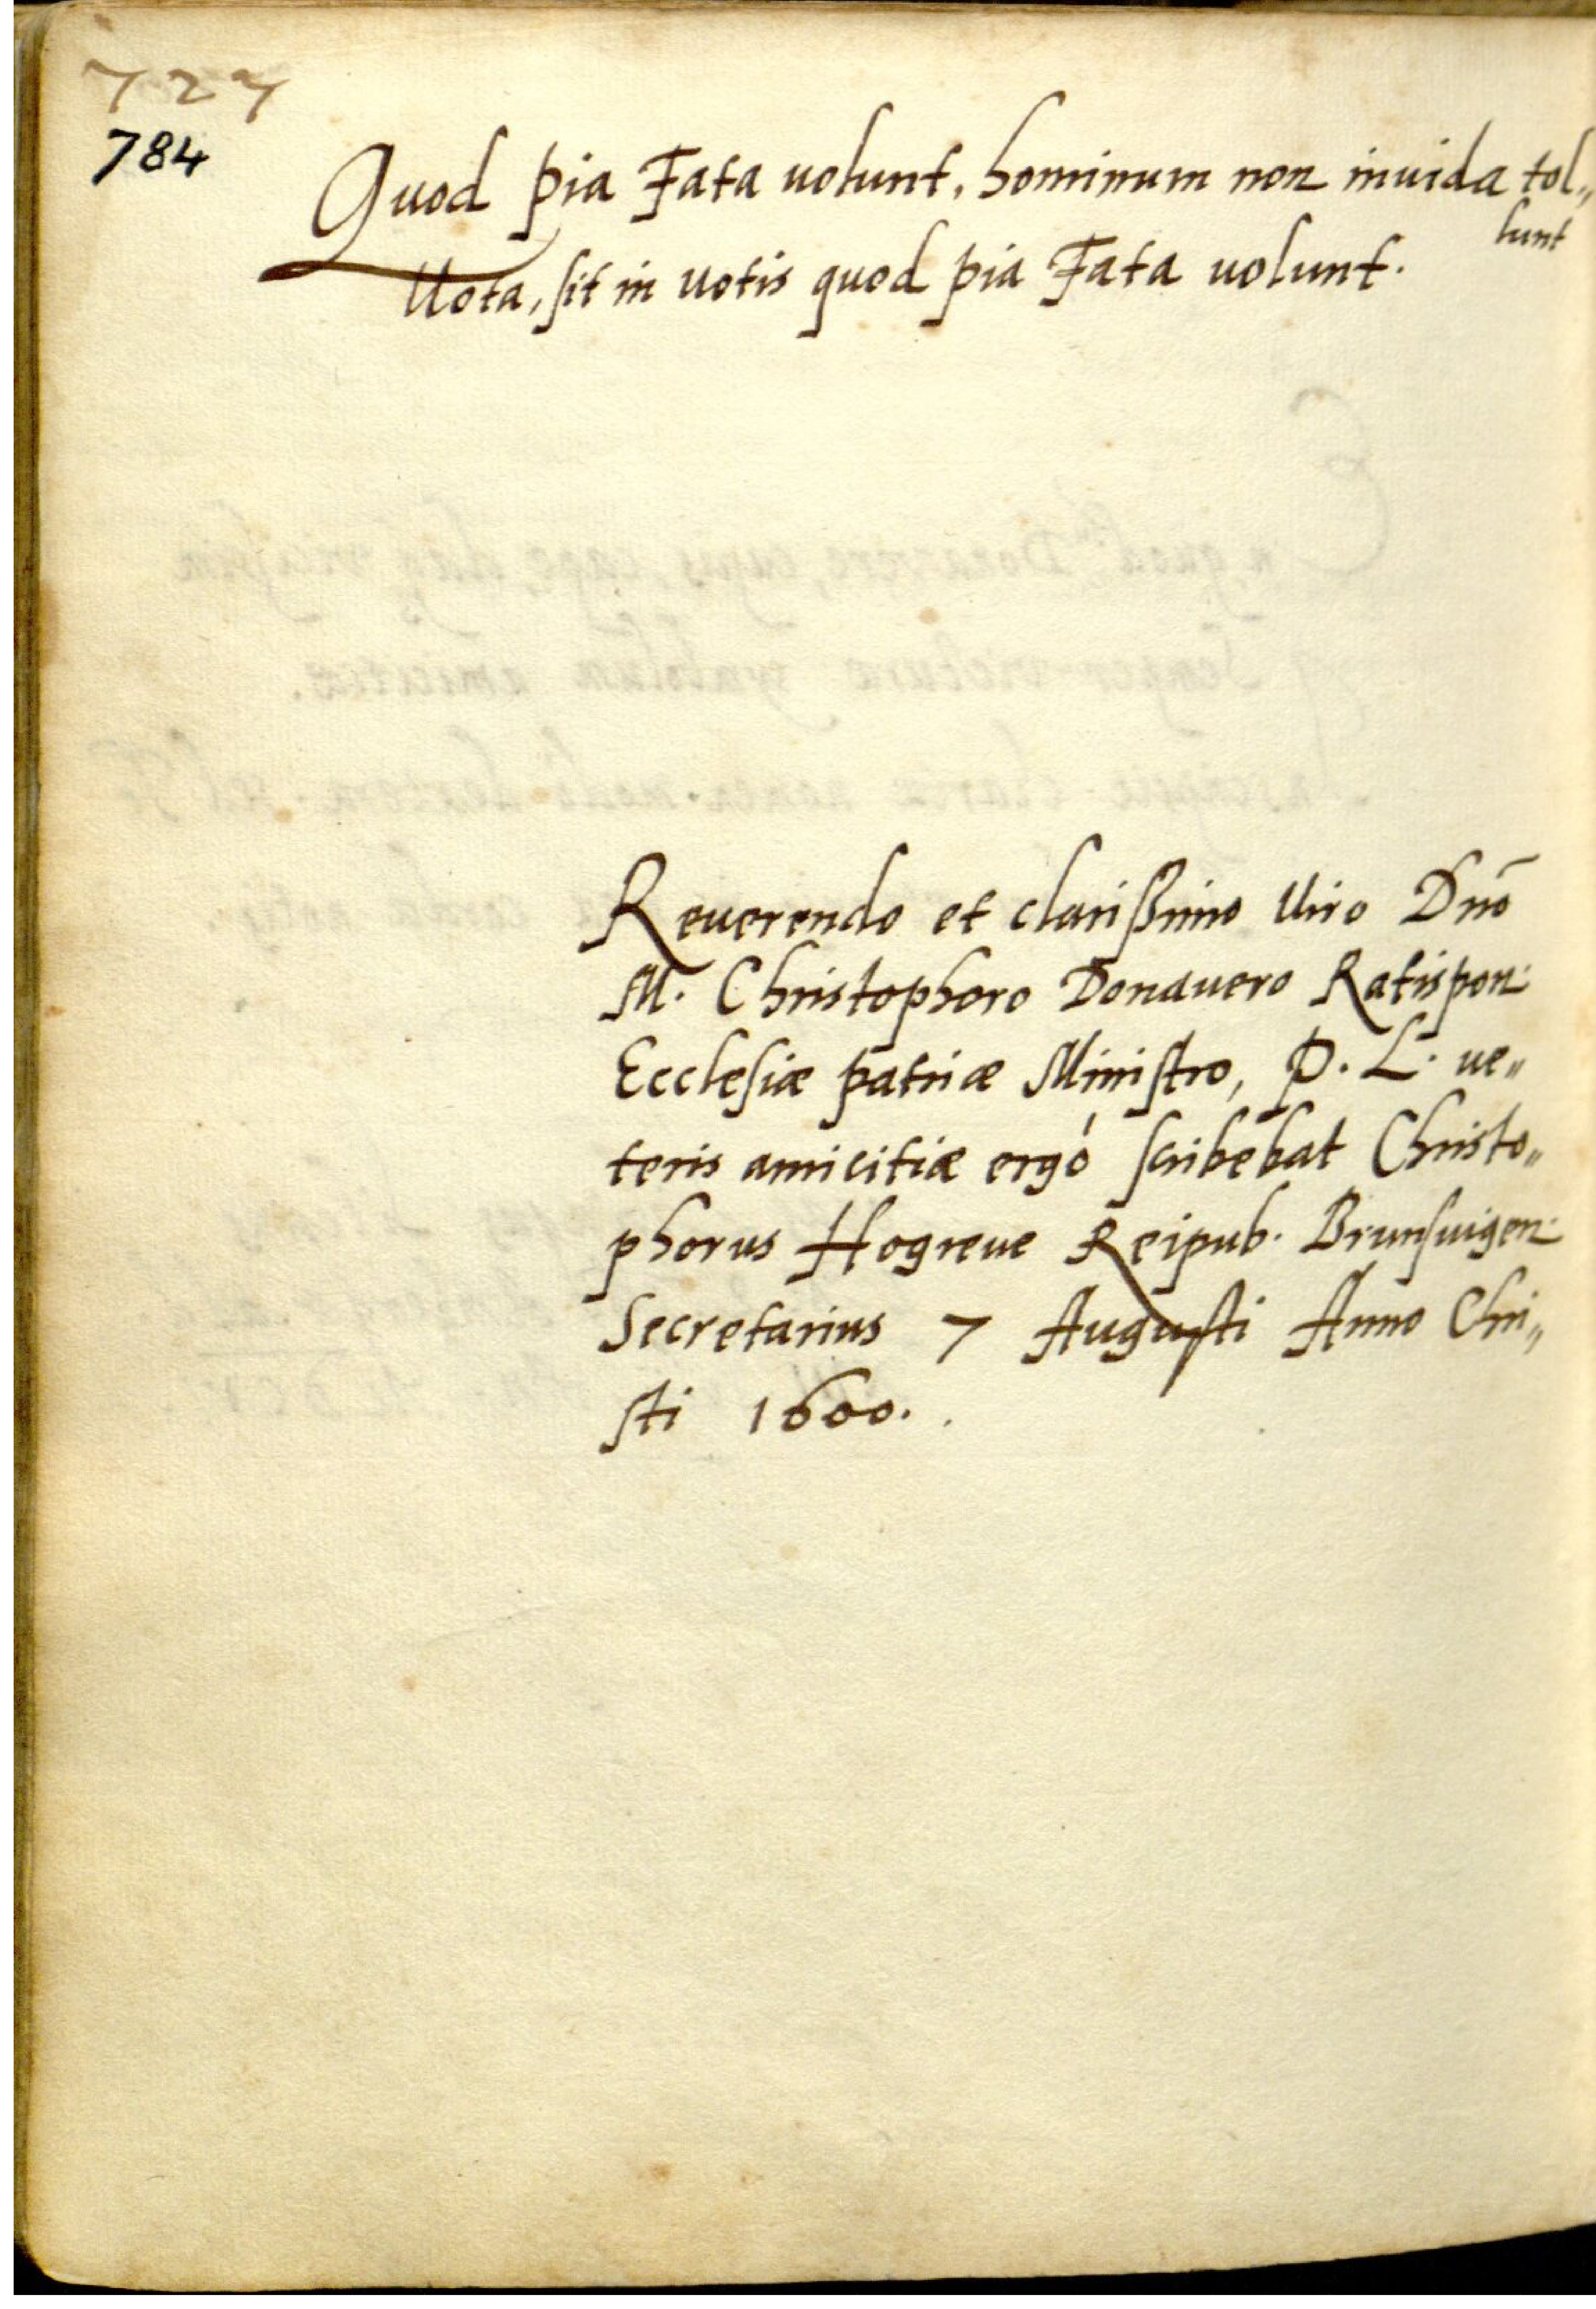 727
784
Quod pia Fata uolunt, hominum non inuida tol„
lunt
Uota, sit in uotis quod pia Fata uolunt.
Reuerendo et clarißimo Uiro Dnō
M. Christophoro Donauero Ratispon:
Ecclesiæ patriæ Ministro, P. L. ue„
teris amicitiæ ergò scribebat Christo„
phorus Hogreue Reipub. Brunsuigen:
Secretarius 7 Augusti Anno Chri„
sti 1600.